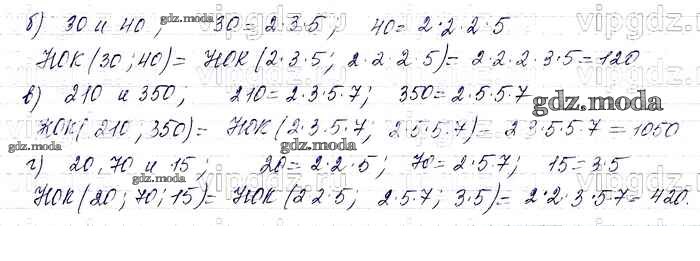 б) 30 и 40; 30 = 2·3·5; 40 = 2·2·2·5
НОК(30; 40) = НОК(2·3·5; 2·2·2·5) = 2·2·2·3·5 = 120
в) 210 и 350; 210 = 2·3·5·7; 350 = 2·5·5·7
НОК(210; 350) = НОК(2·3·5·7; 2·5·5·7) = 2·3·5·5·7 = 1050
г) 20, 70 и 15; 20 = 2·2·5; 70 = 2·5·7; 15 = 3·5
НОК(20; 70; 15) = НОК(2·2·5; 2·5·7; 3·5) = 2·2·3·5·7 = 420.
gdz.moda
gdz.moda
gdz.moda
gdz.moda
gdz.moda
gdz.moda